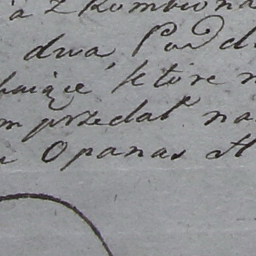 a z Kombiona
dwa, Pod d
które n
m przedał na
Opanas H